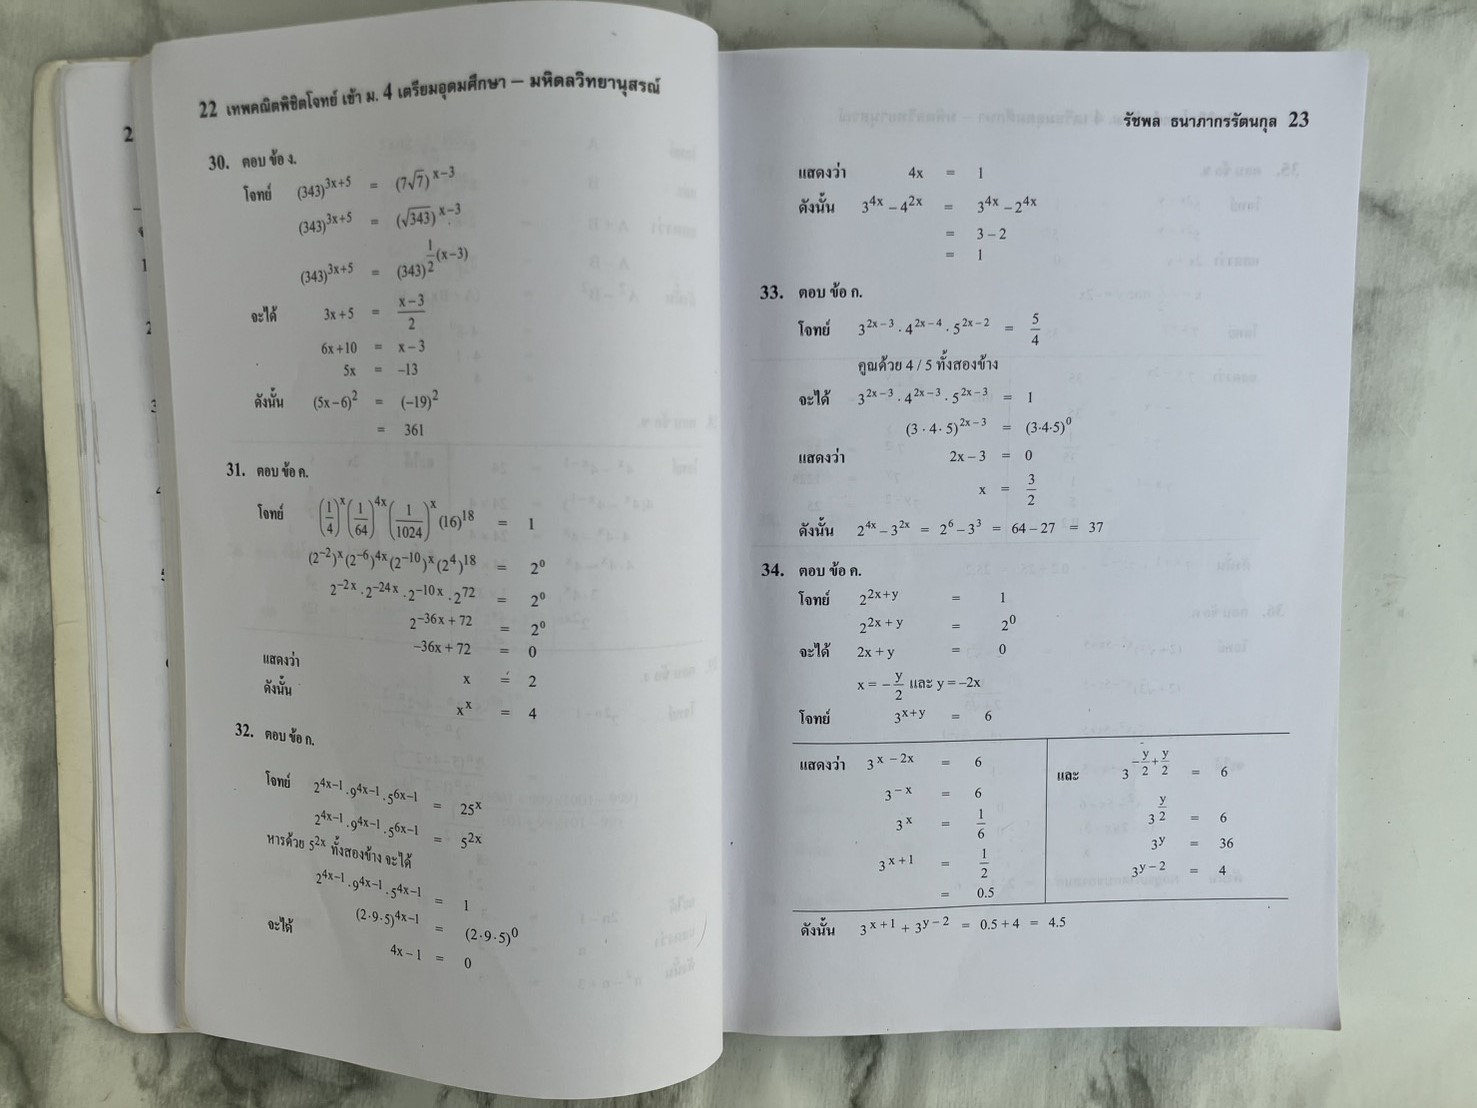 22 เทพคณิตพิชิตโจทย์ เข้า ม. 4 เตรียมอุดมศึกษา – มหิดลวิทยานุสรณ์
30. ตอบ ข้อ ง.
โจทย์ (343)^{3x+5} = (7√7)^{x–3}
(343)^{3x+5} = (√343)^{x–3}
(343)^{3x+5} = (343)^{\frac{1}{2}(x–3)}
จะได้ 3x+5 = \frac{x–3}{2}
6x+10 = x–3
5x = –13
ดังนั้น (5x–6)^2 = (–19)^2
= 361
31. ตอบ ข้อ ค.
โจทย์ (\frac{1}{4})^x (\frac{1}{64})^{4x} (\frac{1}{1024})^x (16)^{18} = 1
(2^{–2})^x (2^{–6})^{4x} (2^{–10})^x (2^4)^{18} = 2^0
2^{–2x} · 2^{–24x} · 2^{–10x} · 2^{72} = 2^0
2^{–36x+72} = 2^0
–36x+72 = 0
แสดงว่า x = 2
ดังนั้น x^x = 4
32. ตอบ ข้อ ก.
โจทย์ 2^{4x–1} · 9^{4x–1} · 5^{6x–1} = 25^x
2^{4x–1} · 9^{4x–1} · 5^{6x–1} = 5^{2x}
หารด้วย 5^{2x} ทั้งสองข้าง จะได้
2^{4x–1} · 9^{4x–1} · 5^{4x–1} = 1
จะได้ (2·9·5)^{4x–1} = (2·9·5)^0
4x–1 = 0
รัชพล ธนาภากรรัตนกุล 23
แสดงว่า 4x = 1
ดังนั้น 3^{4x} – 4^{2x} = 3^{4x} – 2^{4x}
= 3 – 2
= 1
33. ตอบ ข้อ ก.
โจทย์ 3^{2x–3} · 4^{2x–4} · 5^{2x–2} = \frac{5}{4}
คูณด้วย 4 / 5 ทั้งสองข้าง
จะได้ 3^{2x–3} · 4^{2x–3} · 5^{2x–3} = 1
(3 · 4 · 5)^{2x–3} = (3·4·5)^0
แสดงว่า 2x – 3 = 0
x = \frac{3}{2}
ดังนั้น 2^{4x} – 3^{2x} = 2^6 – 3^3 = 64 – 27 = 37
34. ตอบ ข้อ ค.
โจทย์ 2^{2x+y} = 1
2^{2x+y} = 2^0
จะได้ 2x + y = 0
x = –\frac{y}{2} และ y = –2x
โจทย์ 3^{x+y} = 6
แสดงว่า 3^{x–2x} = 6
3^{–x} = 6
3^x = \frac{1}{6}
3^{x+1} = \frac{1}{2}
= 0.5
และ 3^{–\frac{y}{2}+\frac{y}{2}} = 6
3^{\frac{y}{2}} = 6
3^y = 36
3^{y–2} = 4
ดังนั้น 3^{x+1} + 3^{y–2} = 0.5 + 4 = 4.5